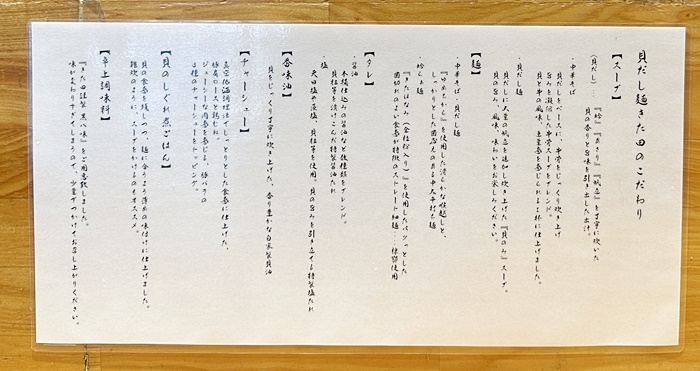 貝だし麺きた田のこだわり
【スープ】
(貝だし)…『蛤』『あさり』『帆立』を丁寧に炊いた
貝の香りと旨味を引き出した出汁。
・中華そば
貝だしベースに、牛骨をじっくり炊き上げ
旨みを凝縮した牛骨スープをブレンド。
貝と牛の風味、重量感を感じられる一杯に仕上げました。
・貝だし麺
貝だしに大量の帆立を追加し炊き上げた『貝のみ』スープ。
貝の旨み、風味、味わいをお楽しみください。
【麺】
・中華そば、貝だし麺
『ゆめちから』を使用した滑らかな喉越しと、
しっかりとした歯応えのある中太平打ち麺
・蛤そば
『きたほなみ(全粒粉入り)』を使用したパツっとした
歯切れのよい食感が特徴のストレート細麺…棣鄂使用
【タレ】
・醤油
木桶仕込みの醤油など数種類をブレンド。
貝柱等を漬けこんだ特製醤油たれ
・塩
天日塩や藻塩、貝柱等を使用。貝の旨みを引き立てる特製塩たれ
【香味油】
貝をじっくり丁寧に炊き上げた、香り豊かな自家製貝油
【チャーシュー】
真空低温調理法でしっとりとした食感に仕上げた、
豚肩ロースと鶏むね。
ジューシーな肉感を感じる、豚バラの
3種のチャーシューをトッピング。
【貝のしぐれ煮ごはん】
貝の食感を残しつつ、麺に合うよう薄めの味付けに仕上げました。
雑炊のように、スープをかけるのもオススメ。
【卓上調味料】
『きた田謹製 黒八味』をご用意致しました。
味がまわりすぎてしまうので、少量ずつかけてお召し上がりください。